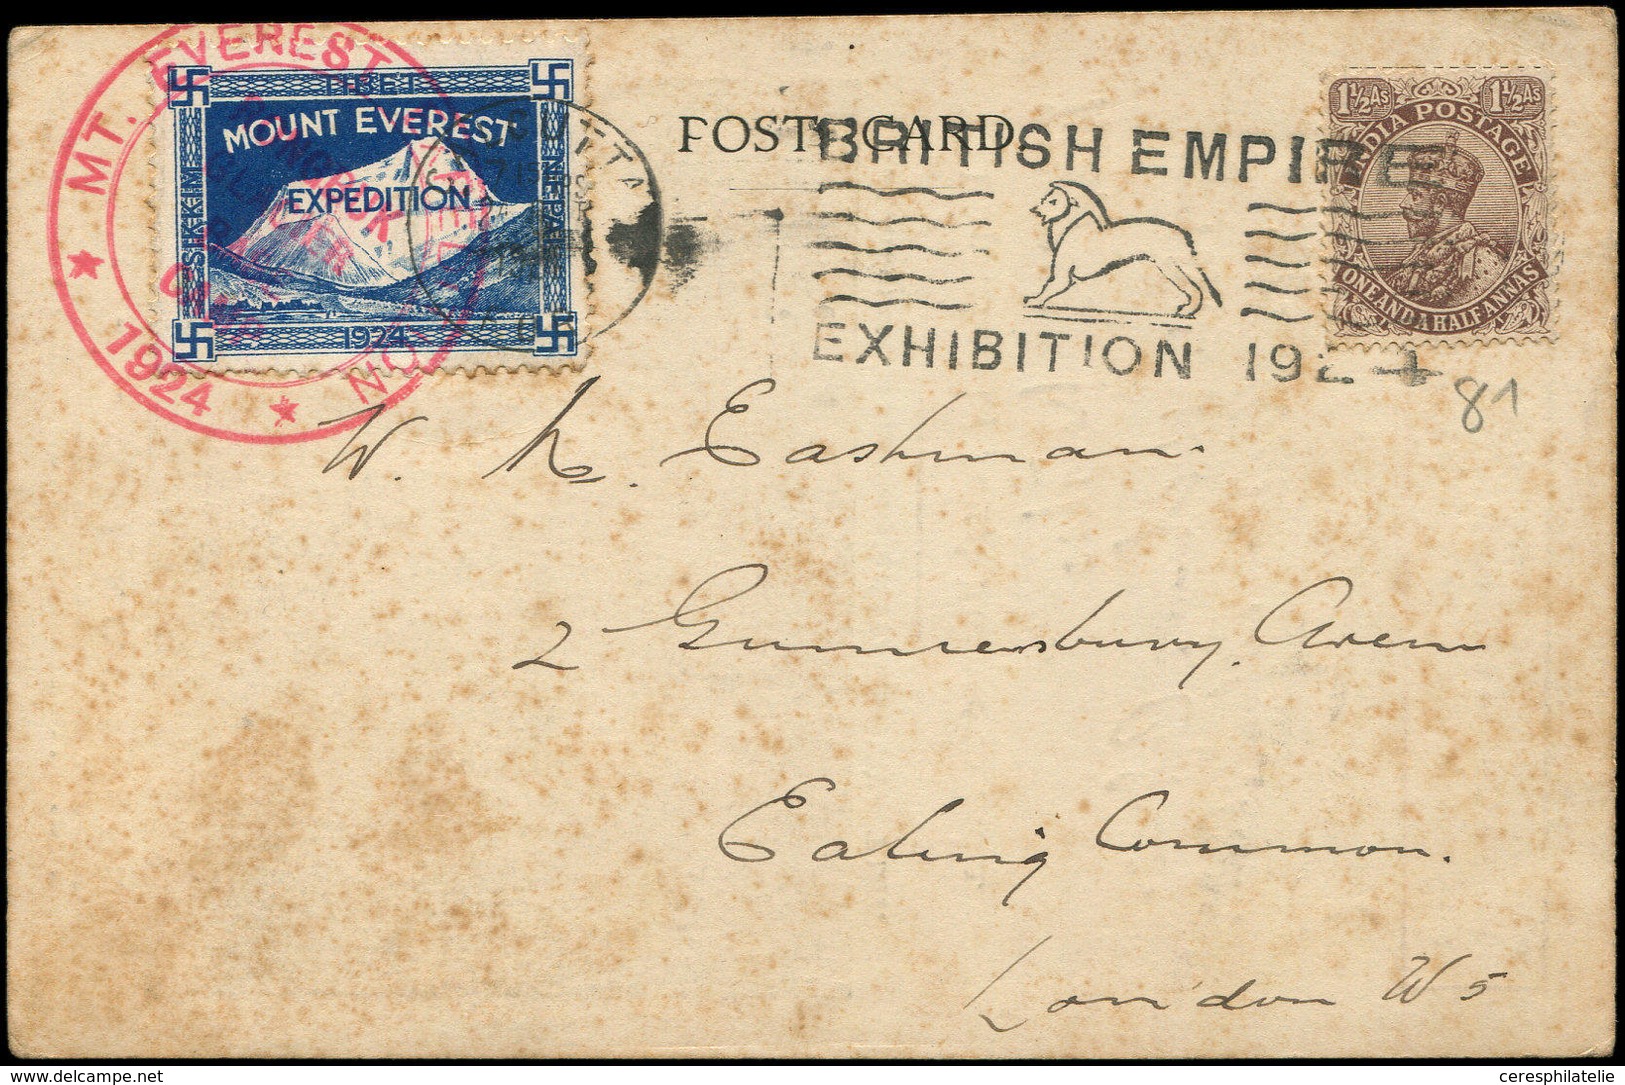 MT. EVEREST
TIBET
MOUNT EVEREST
EXPEDITION
SIKKIM
NEPAL
1924
* 1924 *
POST CARD
BRITISH EMPIRE
EXHIBITION 1924
1½As 1½As
INDIA POSTAGE
ONE AND A HALF ANNAS
81
W. H. Eastman
2 Gunnersbury Avenu
Ealing Common.
London W5
ceresphilatelie